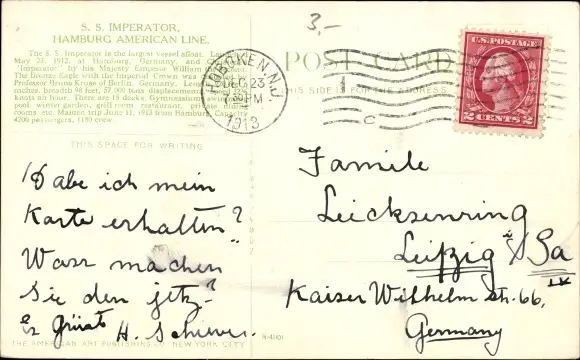 S. S. IMPERATOR,
HAMBURG AMERICAN LINE.
The S. S. Imperator is the largest vessel afloat.
May 23, 1912, at Hamburg, Germany, and
"Imperator" by his Majesty Emperor William
The Bronze Eagle with the Imperial Crown was
Professor Bruno Kruse of Berlin, Germany.
inches, breadth 98 feet, 57,000 tons displacement
knots an hour. There are 18 decks, Gymnasium
pool winter garden, grill room restaurant, private dining
etc. Maiden trip June 11, 1913 from Hamburg. Capacity
4200 passengers, 1180 crew.
3,-
POST CARD
THIS SIDE IS FOR THE ADDRESS
HOBOKEN, N.J.
DEC 23
7 PM
1913
U.S. POSTAGE
2 CENTS 2
THIS SPACE FOR WRITING
Dabe ich mein
Karte erhalten?
Wass machen
Sie den jetz?
Es Grüsst H. Schiever.
Familie
Leicksenring
Leipzig Sa
Kaiser Wilhelm str. 66,
Germany
THE AMERICAN ART PUBLISHING CO. NEW YORK CITY